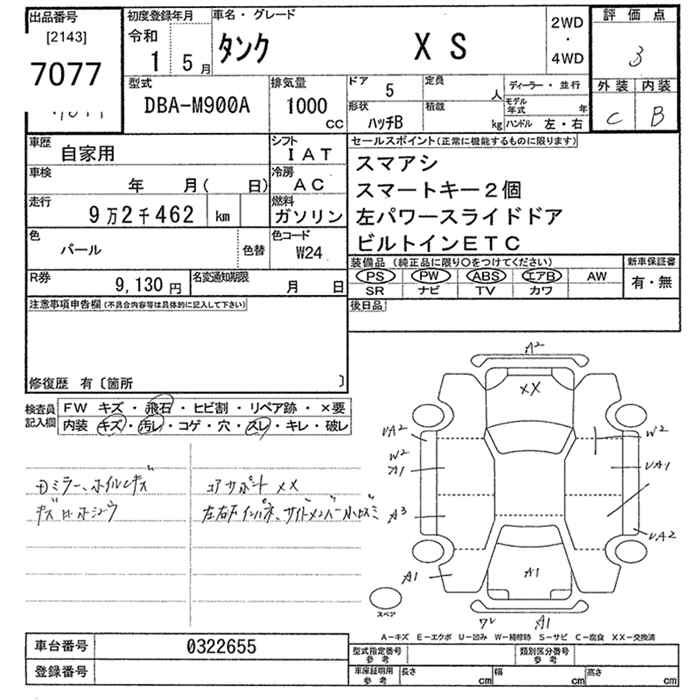 出品番号
[2143]
7077
初度登録年月
令和
1 5月
車名・グレード
タンク X S
2WD
・
4WD
評価点
3
外装 内装
C B
型式
DBA-M900A
排気量
1000
CC
ドア 5
形状 ハッチB
定員 人
積載 kg
ディーラー・並行
モデル年式 年
ハンドル 左・右
車歴 自家用
シフト IAT
車検 年 月( 日)
冷房 AC
走行 9万2千462 km
燃料 ガソリン
色 パール 色替
色コード W24
R券 9,130 円
名変通知期限 月 日
セールスポイント(正常に機能するものに限ります)
スマアシ
スマートキー2個
左パワースライドドア
ビルトインETC
装備品(純正品に限り○をつけてください)
PS PW ABS エアB AW
SR ナビ TV カワ
新車保証書
有・無
後日品
注意事項申告欄(不具合内容等は具体的に記入して下さい)
修復歴 有〔箇所 〕
検査員記入欄
FW キズ・飛石・ヒビ割・リペア跡・×要
内装 キズ・汚レ・コゲ・穴・スレ・キレ・破レ
コアサポート XX
A2
XX
UA2
W2
A1
A3
A1
W2
UA1
UA2
A1
A1
スペア
A−キズ E−エクボ U−凹み W−補修跡 S−サビ C−腐食 XX−交換済
車台番号 0322655
登録番号
型式指定番号 参考
類別区分番号 参考
車庫証明用 参考
長さ cm
幅 cm
高さ cm